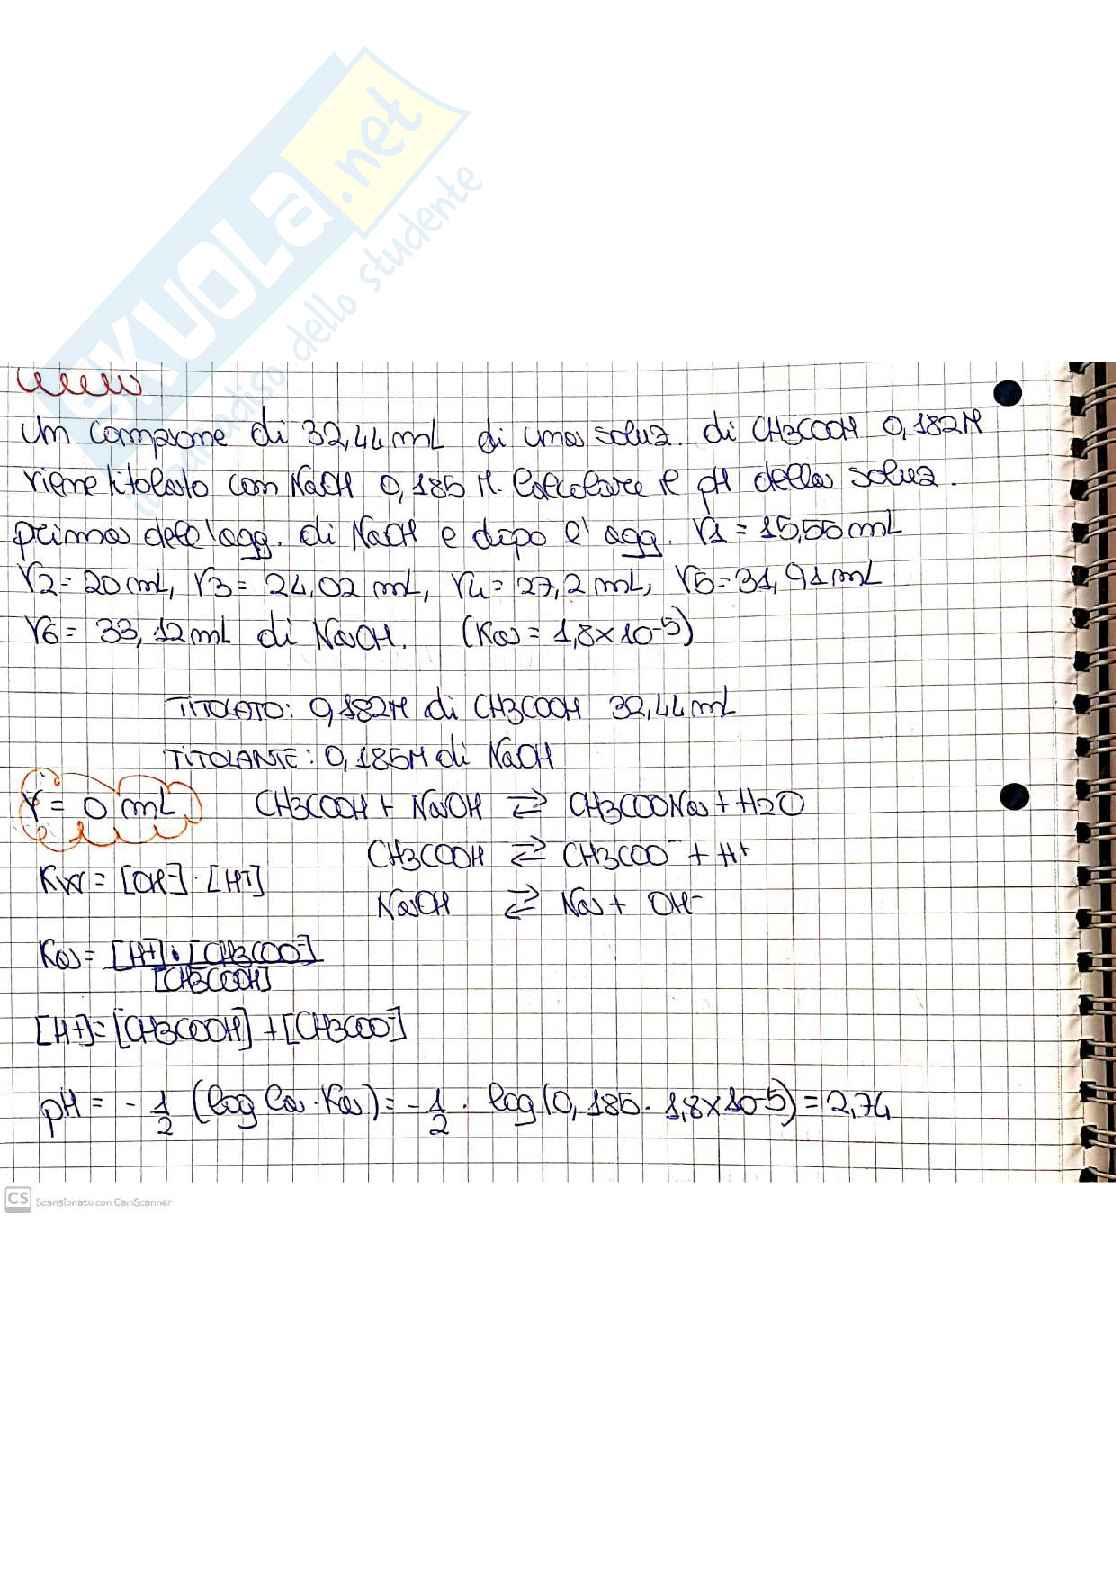 SKUOLA.net
il paradiso dello studente
Un campione di 32,44 mL di una soluz. di CH3COOH 0,182M
viene titolato con NaOH 0,185 M. Calcolare il pH della soluz.
prima dell'agg. di NaOH e dopo l'agg. V1 = 15,55 mL
V2 = 20 mL, V3 = 24,02 mL, V4 = 27,2 mL, V5 = 31,91 mL
V6 = 33,12 mL di NaOH. (Ka = 1,8×10-5)
TITOLATO: 0,182M di CH3COOH 32,44 mL
TITOLANTE: 0,185M di NaOH
V = 0 mL CH3COOH + NaOH ⇄ CH3COONa + H2O
CH3COOH ⇄ CH3COO- + H+
Kw = [OH-] · [H+]
NaOH ⇄ Na+ OH-
Ka = [H+] · [CH3COO-]
[CH3COOH]
[H+] = [CH3COOH] + [CH3COO-]
pH = - 1/2 (log Ca · Ka) = - 1/2 · log (0,185 · 1,8×10-5) = 2,74
CS Scansionato con CamScanner